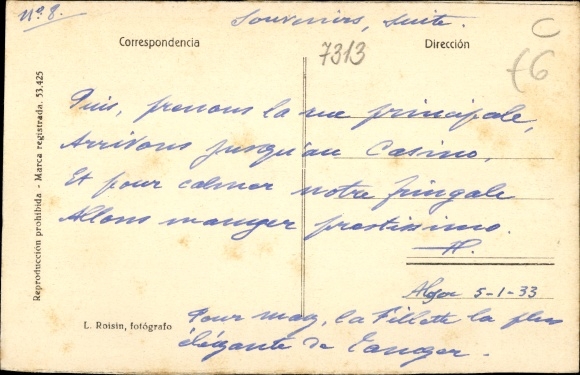 Nº 8.
Souvenirs, suite.
C
Correspondencia
7313
Dirección
£6
Puis, prenons la rue principale,
Arrivons jusqu'au Casino,
Et pour calmer notre fringale
Allons manger prestissimo.
H.
Alger 5-1-33
Pour may, la Fillette la plus
élégante de Tanger.
Reproducción prohibida - Marca registrada. 53.425
L. Roisin, fotógrafo